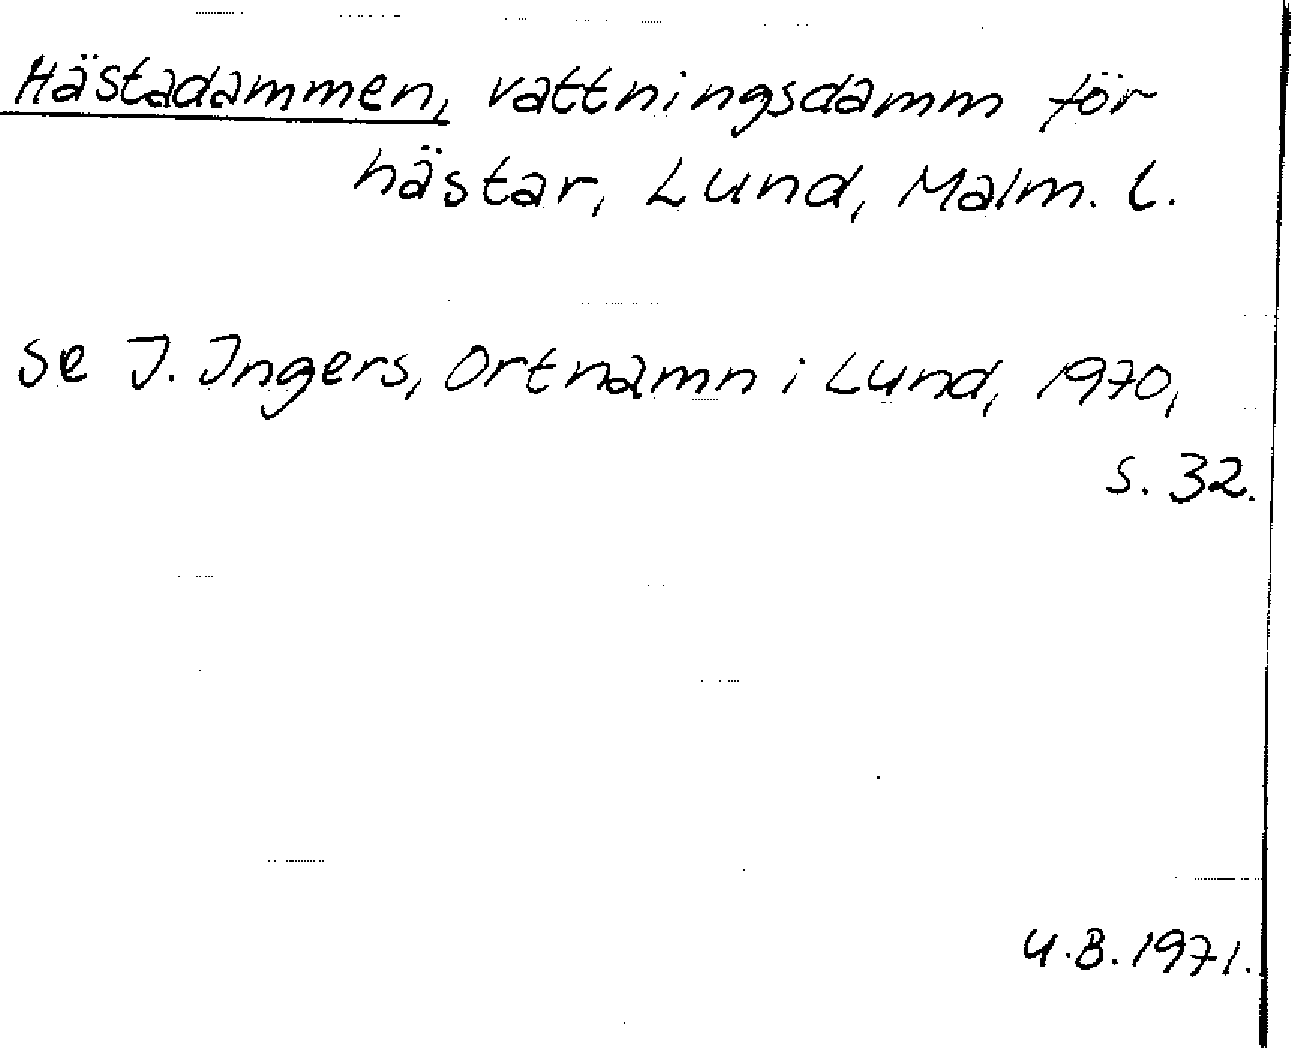 Hästadammen, vattningsdamm för
hästar, Lund, Malm. l.
se I. Ingers, Ortnamn i Lund, 1970,
s. 32.
U.B. 1971.